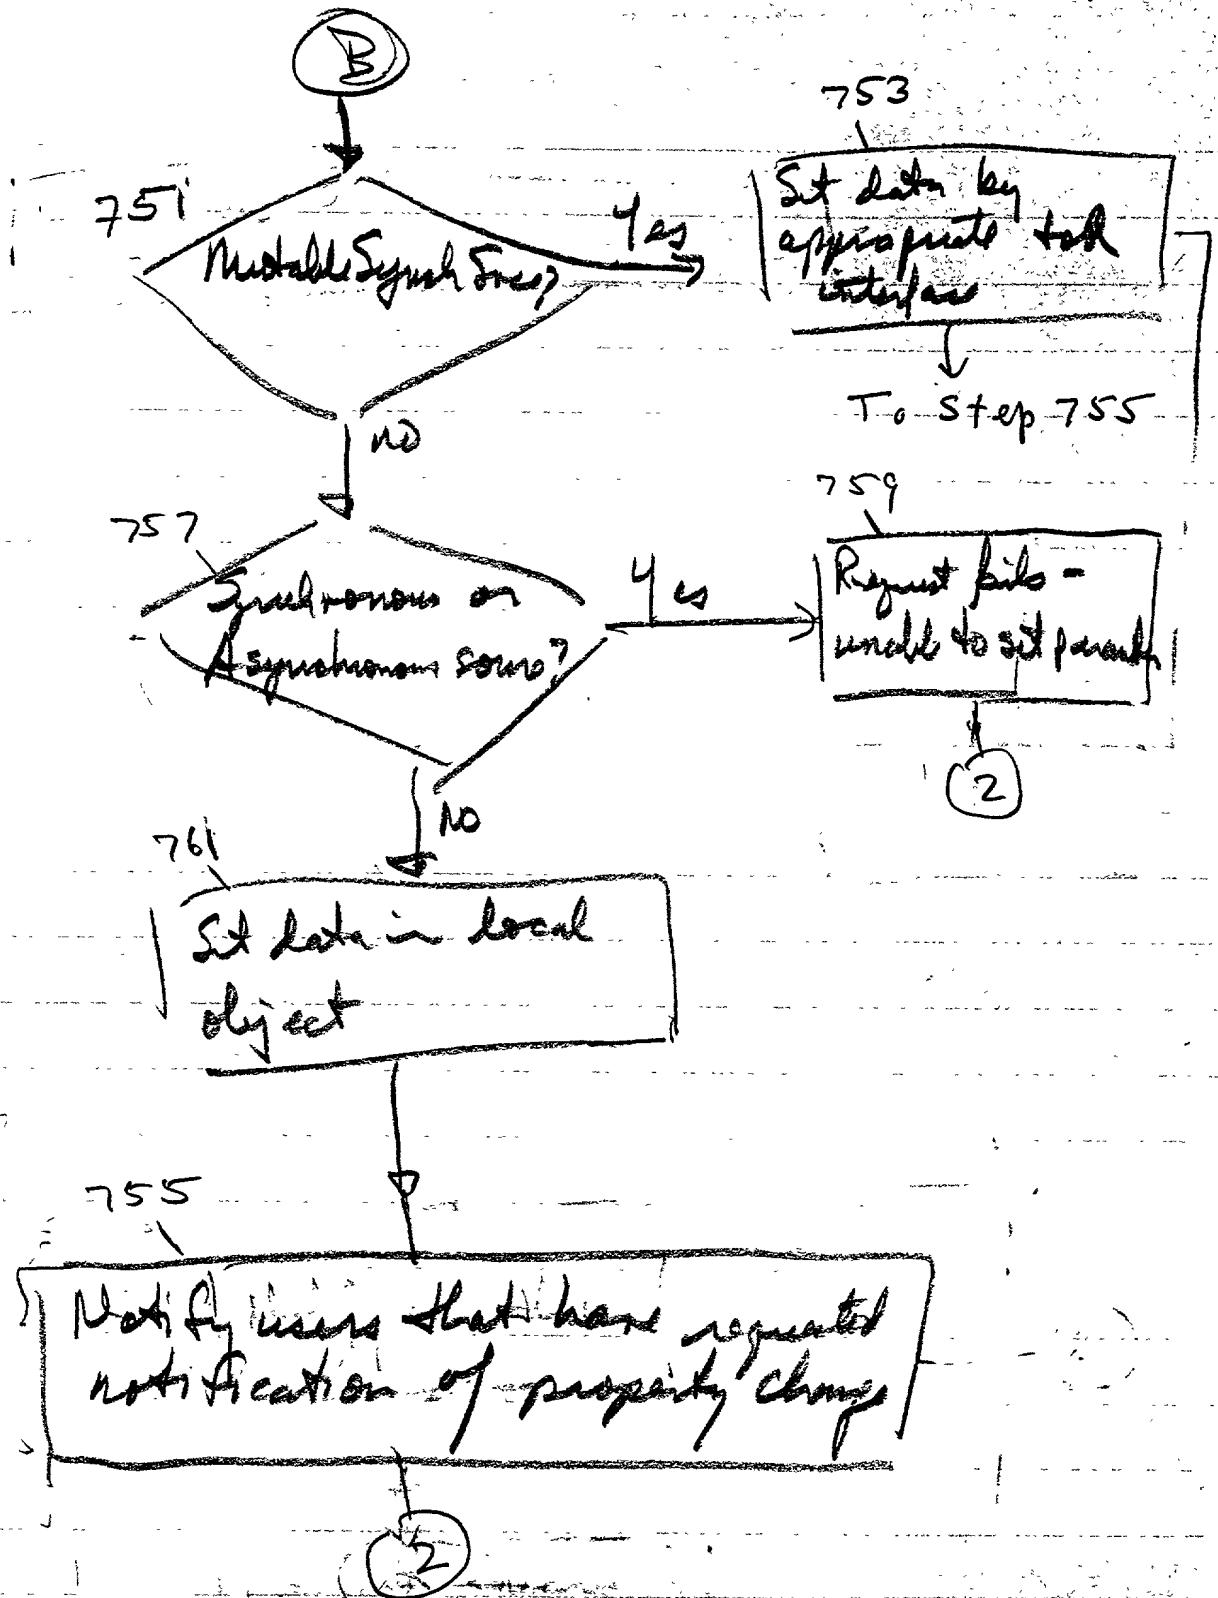 B
751
MutableSynchSrcs?
Yes
753
Set data by
appropriate tool
interface
To Step 755
NO
757
Synchronous or
Asynchronous source?
Yes
759
Request fails -
unable to set
2
NO
761
Set data in local
object
755
Notify users that have requested
notification of property change
2